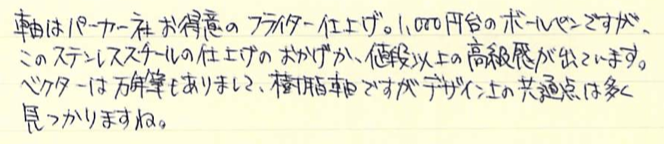 軸はパーカー社お得意のフライター仕上げ。1,000円台のボールペンですが、
このステンレススチールの仕上げのおかげか、値段以上の高級感が出ています。
ベクターは万年筆もありまして、樹脂軸ですがデザイン上の共通点は多く
見つかりますね。